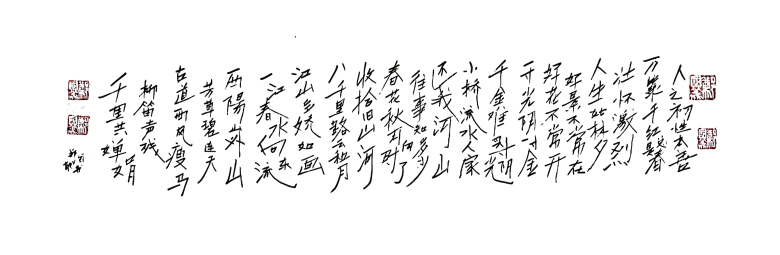 人之初性本善
万紫千红总是春
壮怀激烈
人生如梦
好景不常在
好花不常开
一寸光阴一寸金
小桥流水人家
还我河山
往事知多少
春花秋月何时了
收拾旧山河
八千里路云和月
江山多娇如画
一江春水向东流
夕陽山外山
芳草碧连天
古道西风瘦马
柳笛声残
千里共婵娟